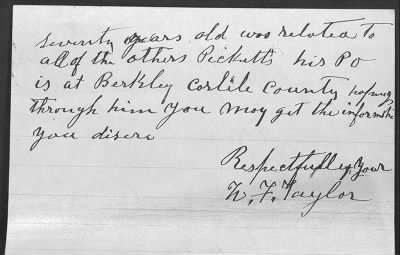 seventy years old was related to
all of the others Picketts his PO
is at Berkley Carlile County hoping
through him you may get the informati
you disere
Respectfully Your
W. F. Taylor